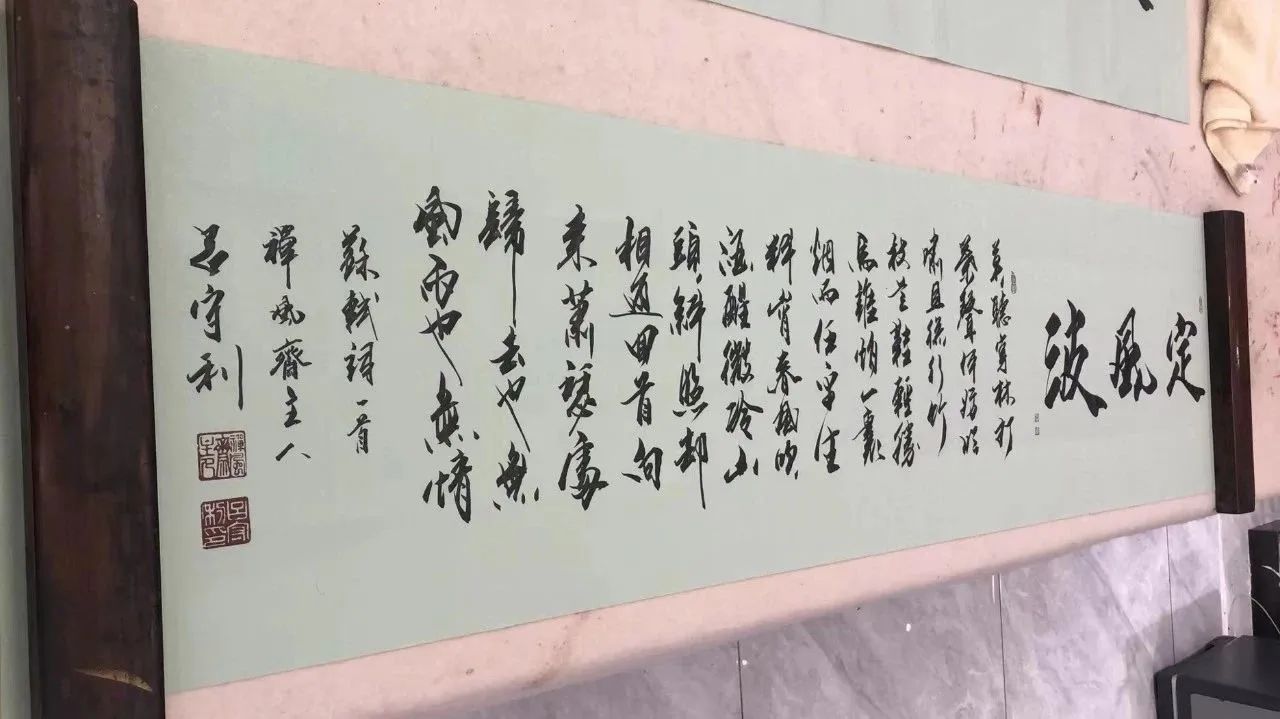 定風波
莫聽穿林打
葉聲何妨吟
嘯且徐行竹
杖芒鞋輕勝
馬誰怕一蓑
烟雨任平生
料峭春風吹
酒醒微冷山
頭斜照却
相迎回首向
來蕭瑟處
歸去也無
風雨也無情
蘇軾詞一首
禪風齋主人
呂守利
禪風齋主人
呂守利印